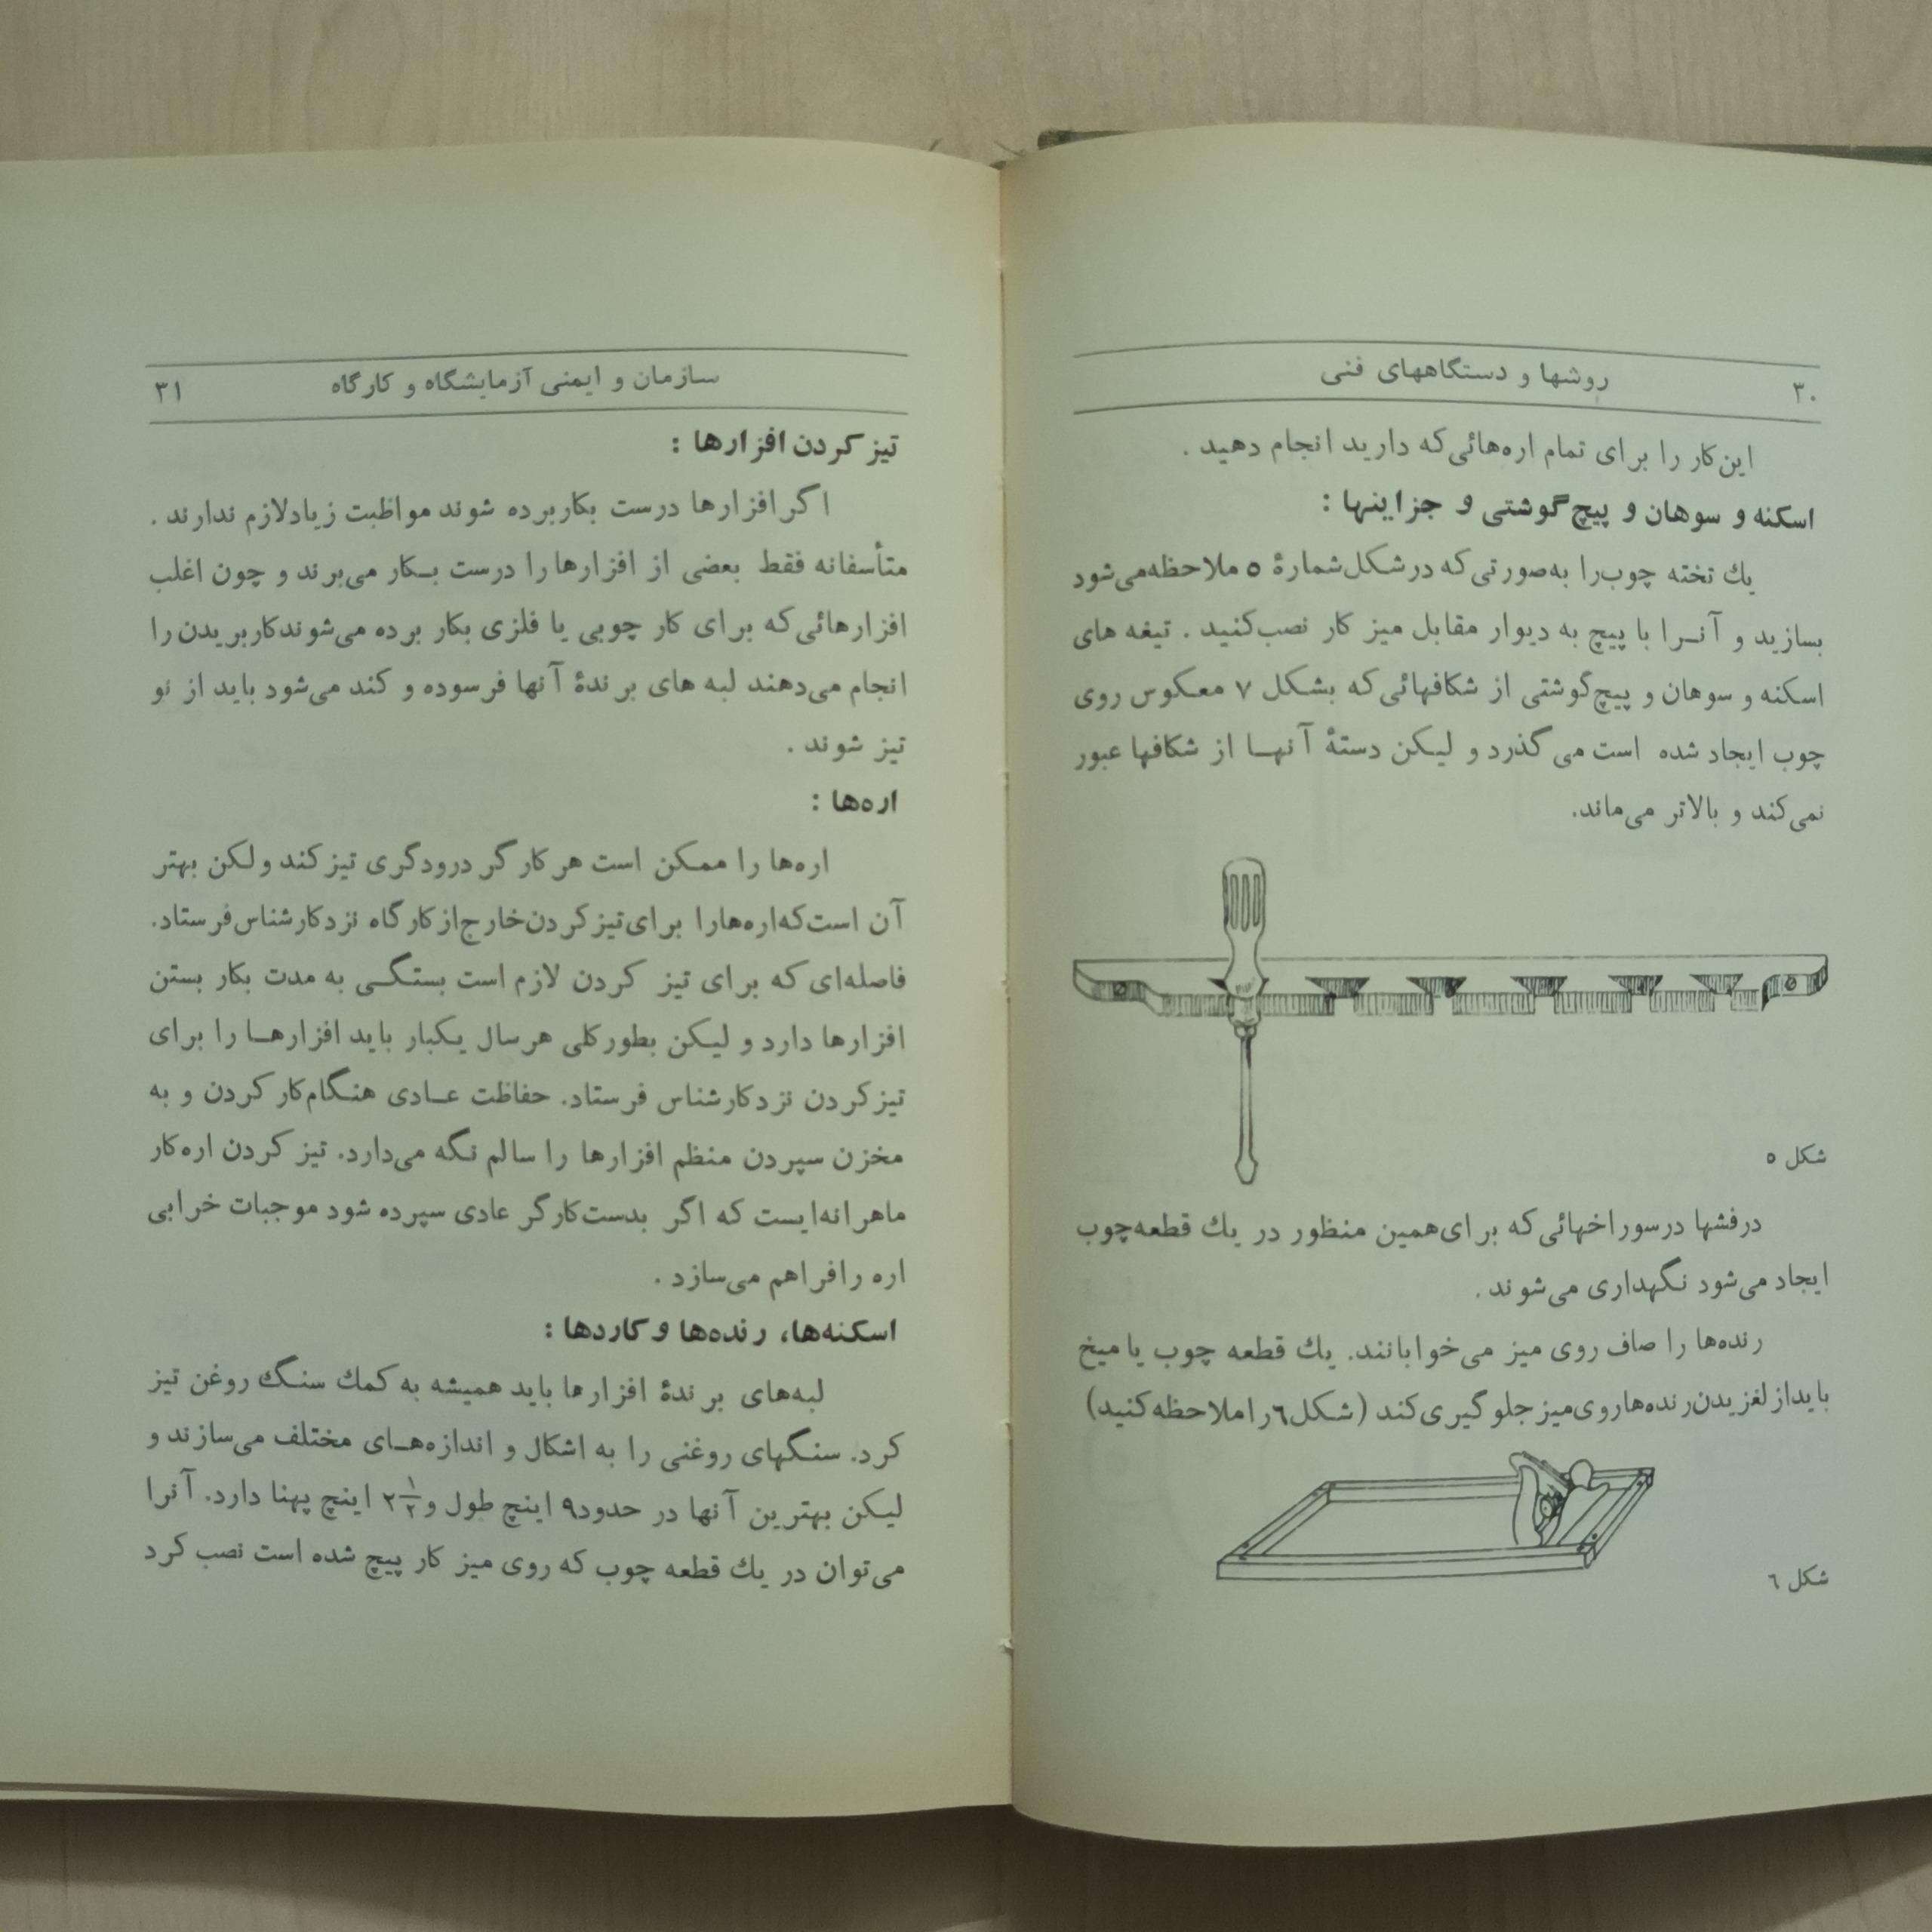 ۳۰ روشها و دستگاههای فنی
این‌کار را برای تمام اره‌هائی‌که دارید انجام دهید .
اسکنه و سوهان و پیچ‌گوشتی و جزاینها :
یك تخته چوب‌را به‌صورتی‌که درشکل‌شمارهٔ ۵ ملاحظه‌می‌شود
بسازید و آنـرا با پیچ به دیوار مقابل میز کار نصب‌کنید . تیغه های
اسکنه و سوهان و پیچ‌گوشتی از شکافهائی‌که بشکل ۷ معکوس روی
چوب ایجاد شده است می گذرد و لیکن دستهٔ آنهـا از شکافها عبور
نمی‌کند و بالاتر می‌ماند.
شکل ۵
درفشها درسوراخهائی‌که برای‌همین منظور در یك قطعه‌چوب
ایجاد می‌شود نگهداری می‌شوند .
رنده‌ها را صاف روی میز می‌خوابانند. یك قطعه چوب یا میخ
بایداز لغزیدن‌رنده‌هاروی‌میز جلوگیری‌کند (شکل٦راملاحظه‌کنید)
شکل ٦
سازمان و ایمنی آزمایشگاه و کارگاه ۳۱
تیز کردن افزارها :
اگرافزارها درست بکاربرده شوند مواظبت زیادلازم ندارند .
متأسفانه فقط بعضی از افزارها را درست بـکار می‌برند و چون اغلب
افزارهائی‌که برای کار چوبی یا فلزی بکار برده می‌شوندکاربریدن را
انجام می‌دهند لبه های برندهٔ آنها فرسوده و کند می‌شود باید از نو
تیز شوند .
اره‌ها :
اره‌ها را ممکن است هرکارگر درودگری تیزکند ولکن بهتر
آن است‌که‌اره‌هارا برای‌تیزکردن‌خارج‌ازکارگاه نزدکارشناس‌فرستاد.
فاصله‌ای که برای تیز کردن لازم است بستگـی به مدت بکار بستن
افزارها دارد و لیکن بطورکلی هرسال یکبار باید افزارهـا را برای
تیزکردن نزدکارشناس فرستاد. حفاظت عـادی هنگام‌کارکردن و به
مخزن سپردن منظم افزارها را سالم نگه می‌دارد. تیز کردن اره‌کار
ماهرانه‌ایست که اگر بدست‌کارگر عادی سپرده شود موجبات خرابی
اره رافراهم می‌سازد .
اسکنه‌ها، رنده‌ها وکاردها :
لبه‌های برندهٔ افزارها باید همیشه به کمك سنگ روغن تیز
کرد. سنگهای روغنی را به اشکال و اندازه‌هـای مختلف می‌سازند و
لیکن بهترین آنها در حدود۹ اینچ طول و ۲۱/۲ اینچ پهنا دارد. آنرا
می‌توان در یك قطعه چوب که روی میز کار پیچ شده است نصب کرد